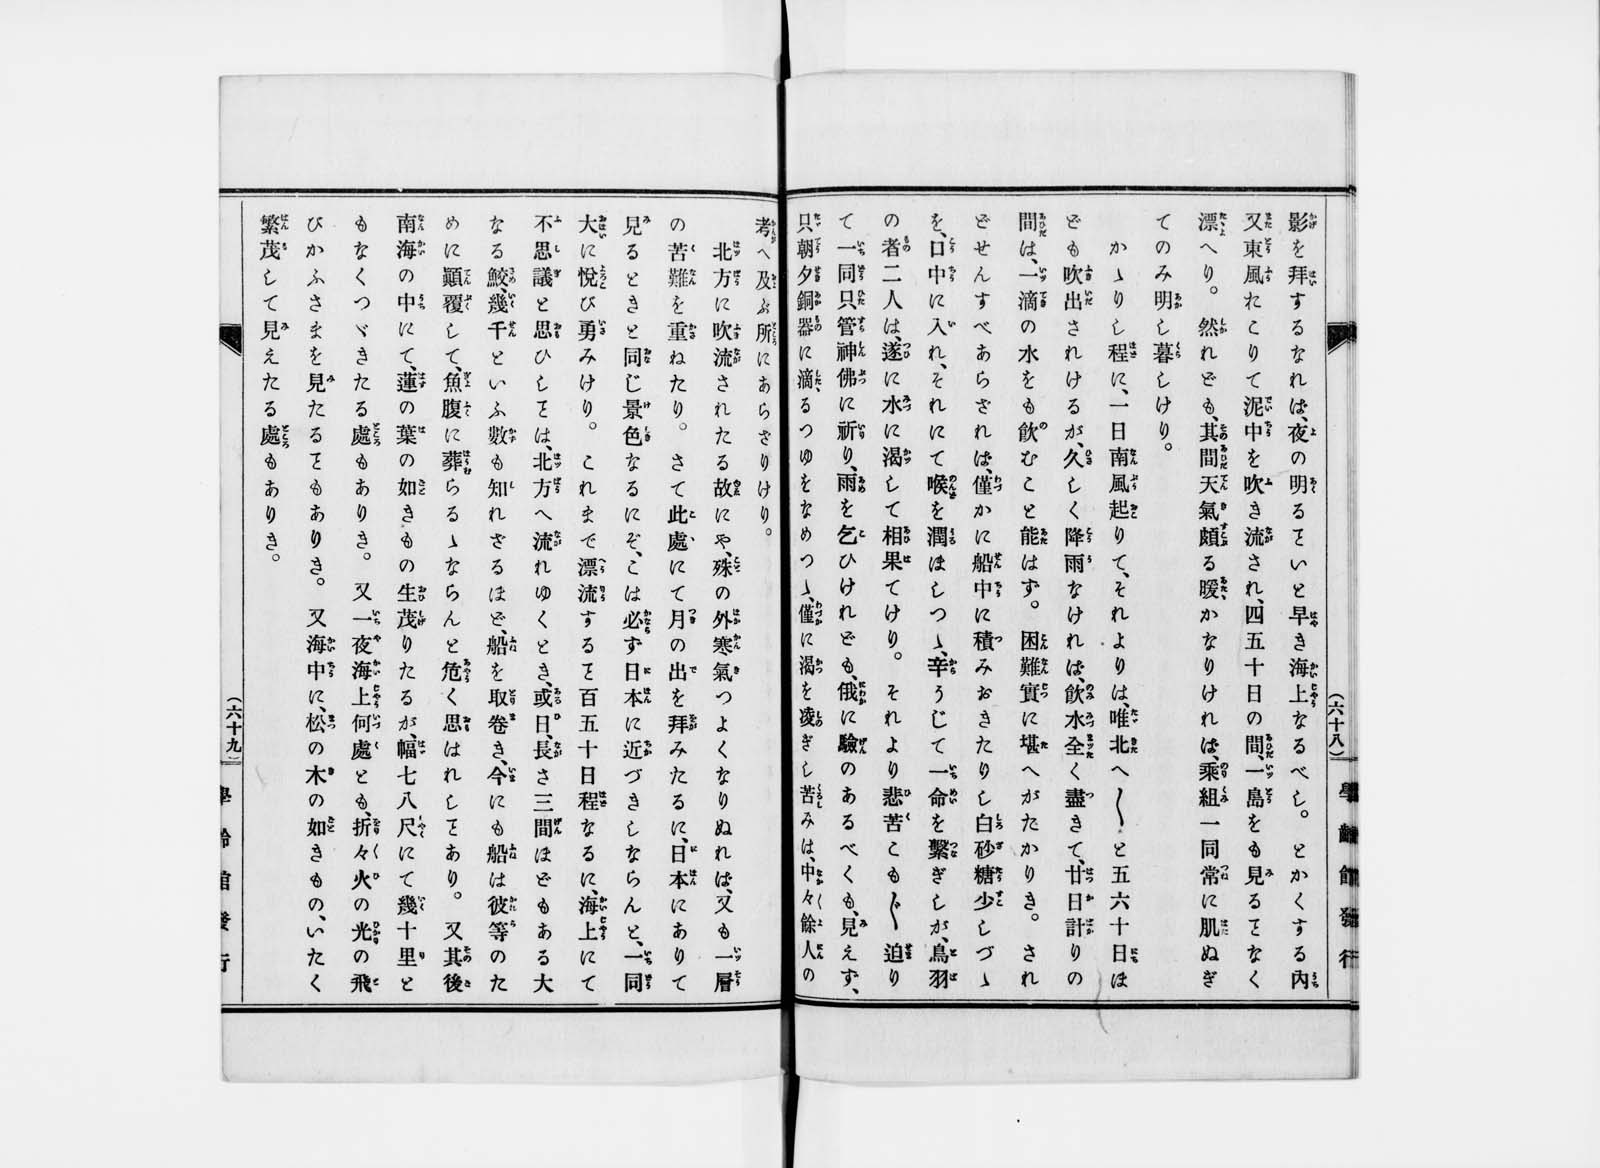 影を拜するなれば、夜の明るﾄいと早き海上なるべし。とかくする內
又東風れこりて泥中を吹き流され、四五十日の間、一島をも見るヿなく
漂へり。然れども、其間天氣頗る暖かなりければ、乘組一同常に肌ぬぎ
てのみ明し暮しけり。
かゝりし程に、一日南風起りて、それよりは、唯北へ〳〵と五六十日ほ
ども吹出されけるが、久しく降雨なければ、飮水全く盡きて、廿日計りの
間は、一滴の水をも飮むこと能はず。困難實に堪へがたかりき。され
どせんすべあらざれば、僅かに船中に積みおきたりし白砂糖少しづゝ
を、口中に入れ、それにて喉を潤ほしつゝ、辛うじて一命を繫ぎしが、鳥羽
の者二人は、遂に水に渴して相果てけり。それより悲苦こも〴〵迫り
て一同只管神佛に祈り、雨を乞ひけれども、俄に驗のあるべくも、見えず、
只朝夕銅器に滴、るつゆをなめつゝ、僅に渴を凌ぎし苦みは、中々餘人の
(六十八)
學齡館發行
考へ及ぶ所にあらざりけり。
北方に吹流されたる故にや、殊の外寒氣つよくなりぬれば、又も一層
の苦難を重ねたり。さて此處にて月の出を拜みたるに、日本にありて
見るときと同じ景色なるにぞ、こは必ず日本に近づきしならんと、一同
大に悅び勇みけり。これまで漂流するヿ百五十日程なるに、海上にて
不思議と思ひしヿは、北方へ流れゆくとき、或日、長さ三間ほどもある大
なる鮫、幾千といふ數も知れざるほど、船を取卷き、今にも船は彼等のた
めに顚覆して、魚腹に葬らるゝならんと危く思はれしヿあり。又其後
南海の中にて、蓮の葉の如きもの生茂りたるが、幅七八尺にて幾十里と
もなくつゞきたる處もありき。又一夜海上何處とも、折々火の光の飛
びかふさまを見たるヿもありき。又海中に、松の木の如きもの、いたく
繁茂して見えたる處もありき。
(六十九)
學齡館發行